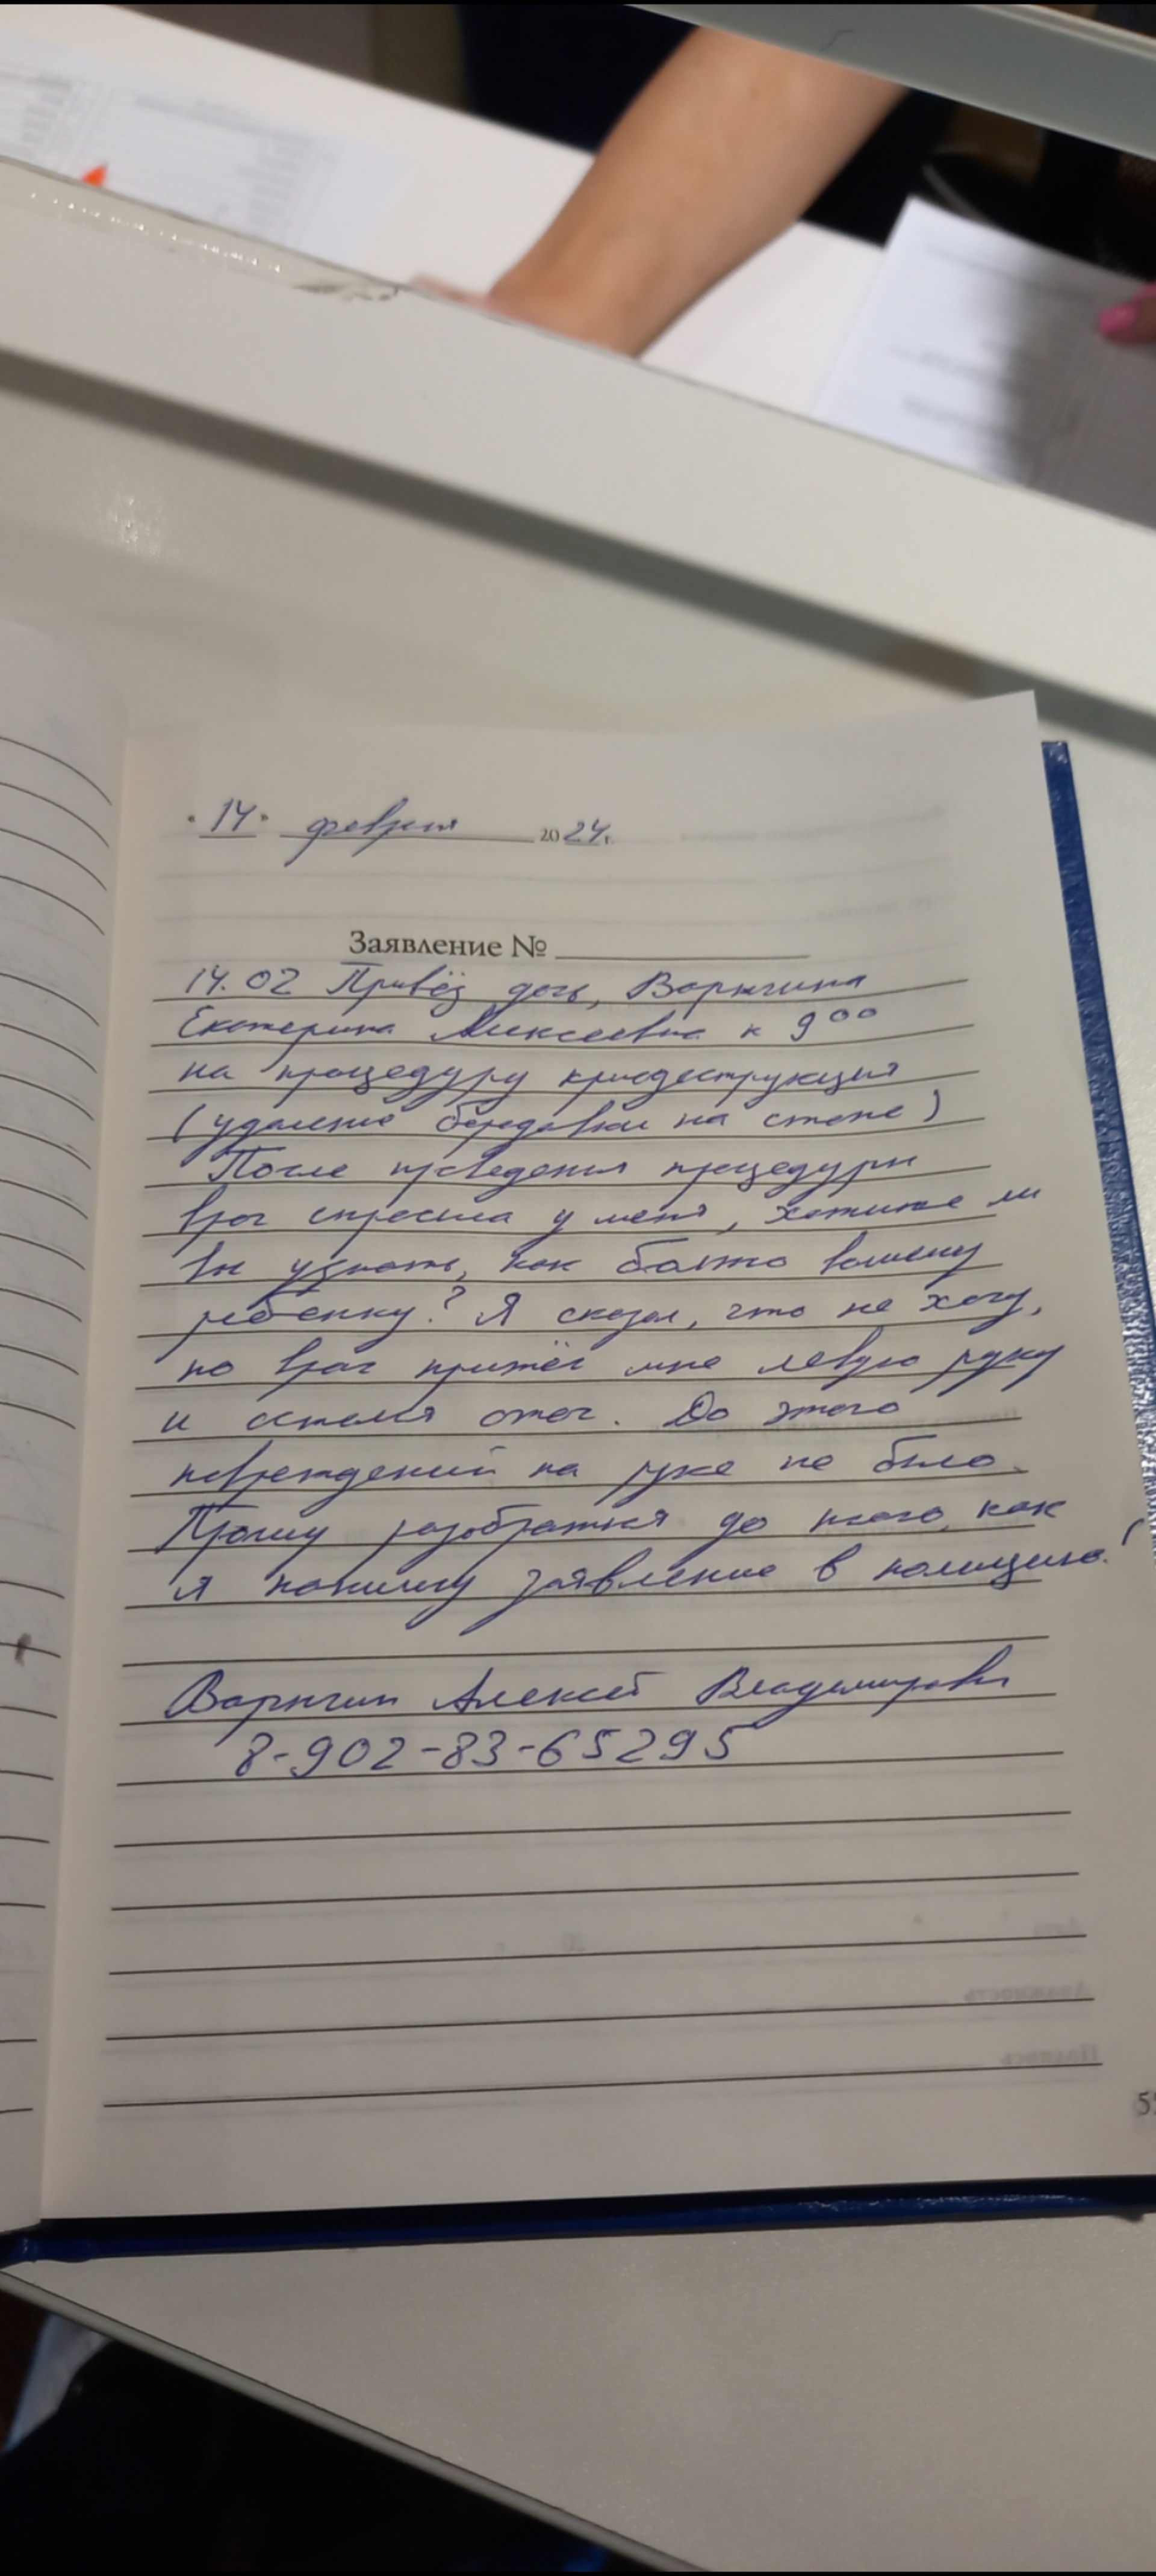 "14" февраля 2024 г.
Заявление №
14.02 Привёз дочь, Варыгина
Екатерина Алексеевна к 9 00
на процедуру криодеструкция
(удаление бородавки на стопе)
После проведения процедуры
врач спросила у меня, хотите ли
вы узнать, как больно вашему
ребенку? Я сказал, что не хочу,
но врач прижёг мне левую руку
и остался ожог. До этого
повреждений на руке не было.
Прошу разобраться до того, как
я напишу заявление в полицию.
Варыгин Алексей Владимирович
8-902-83-65295